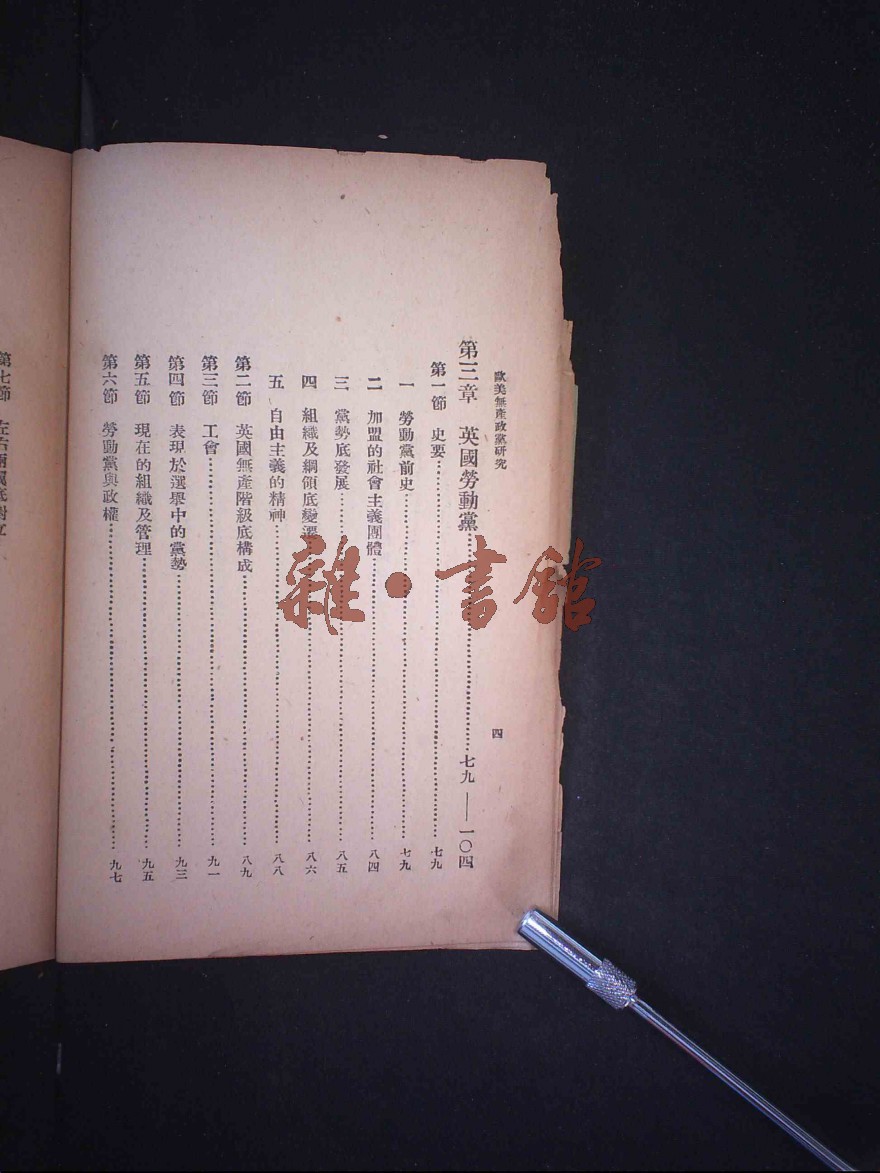 歐美無產政黨研究 四
第三章 英國勞動黨……七九——一〇四
第一節 史要……七九
一 勞動黨前史……七九
二 加盟的社會主義團體……八四
三 黨勢底發展……八五
四 組織及綱領底變遷……八六
五 自由主義的精神……八八
第二節 英國無產階級底構成……八九
第三節 工會……九一
第四節 表現於選舉中的黨勢……九三
第五節 現在的組織及管理……九五
第六節 勞動黨與政權……九七
第七節 左右兩翼底對立
雜·書館